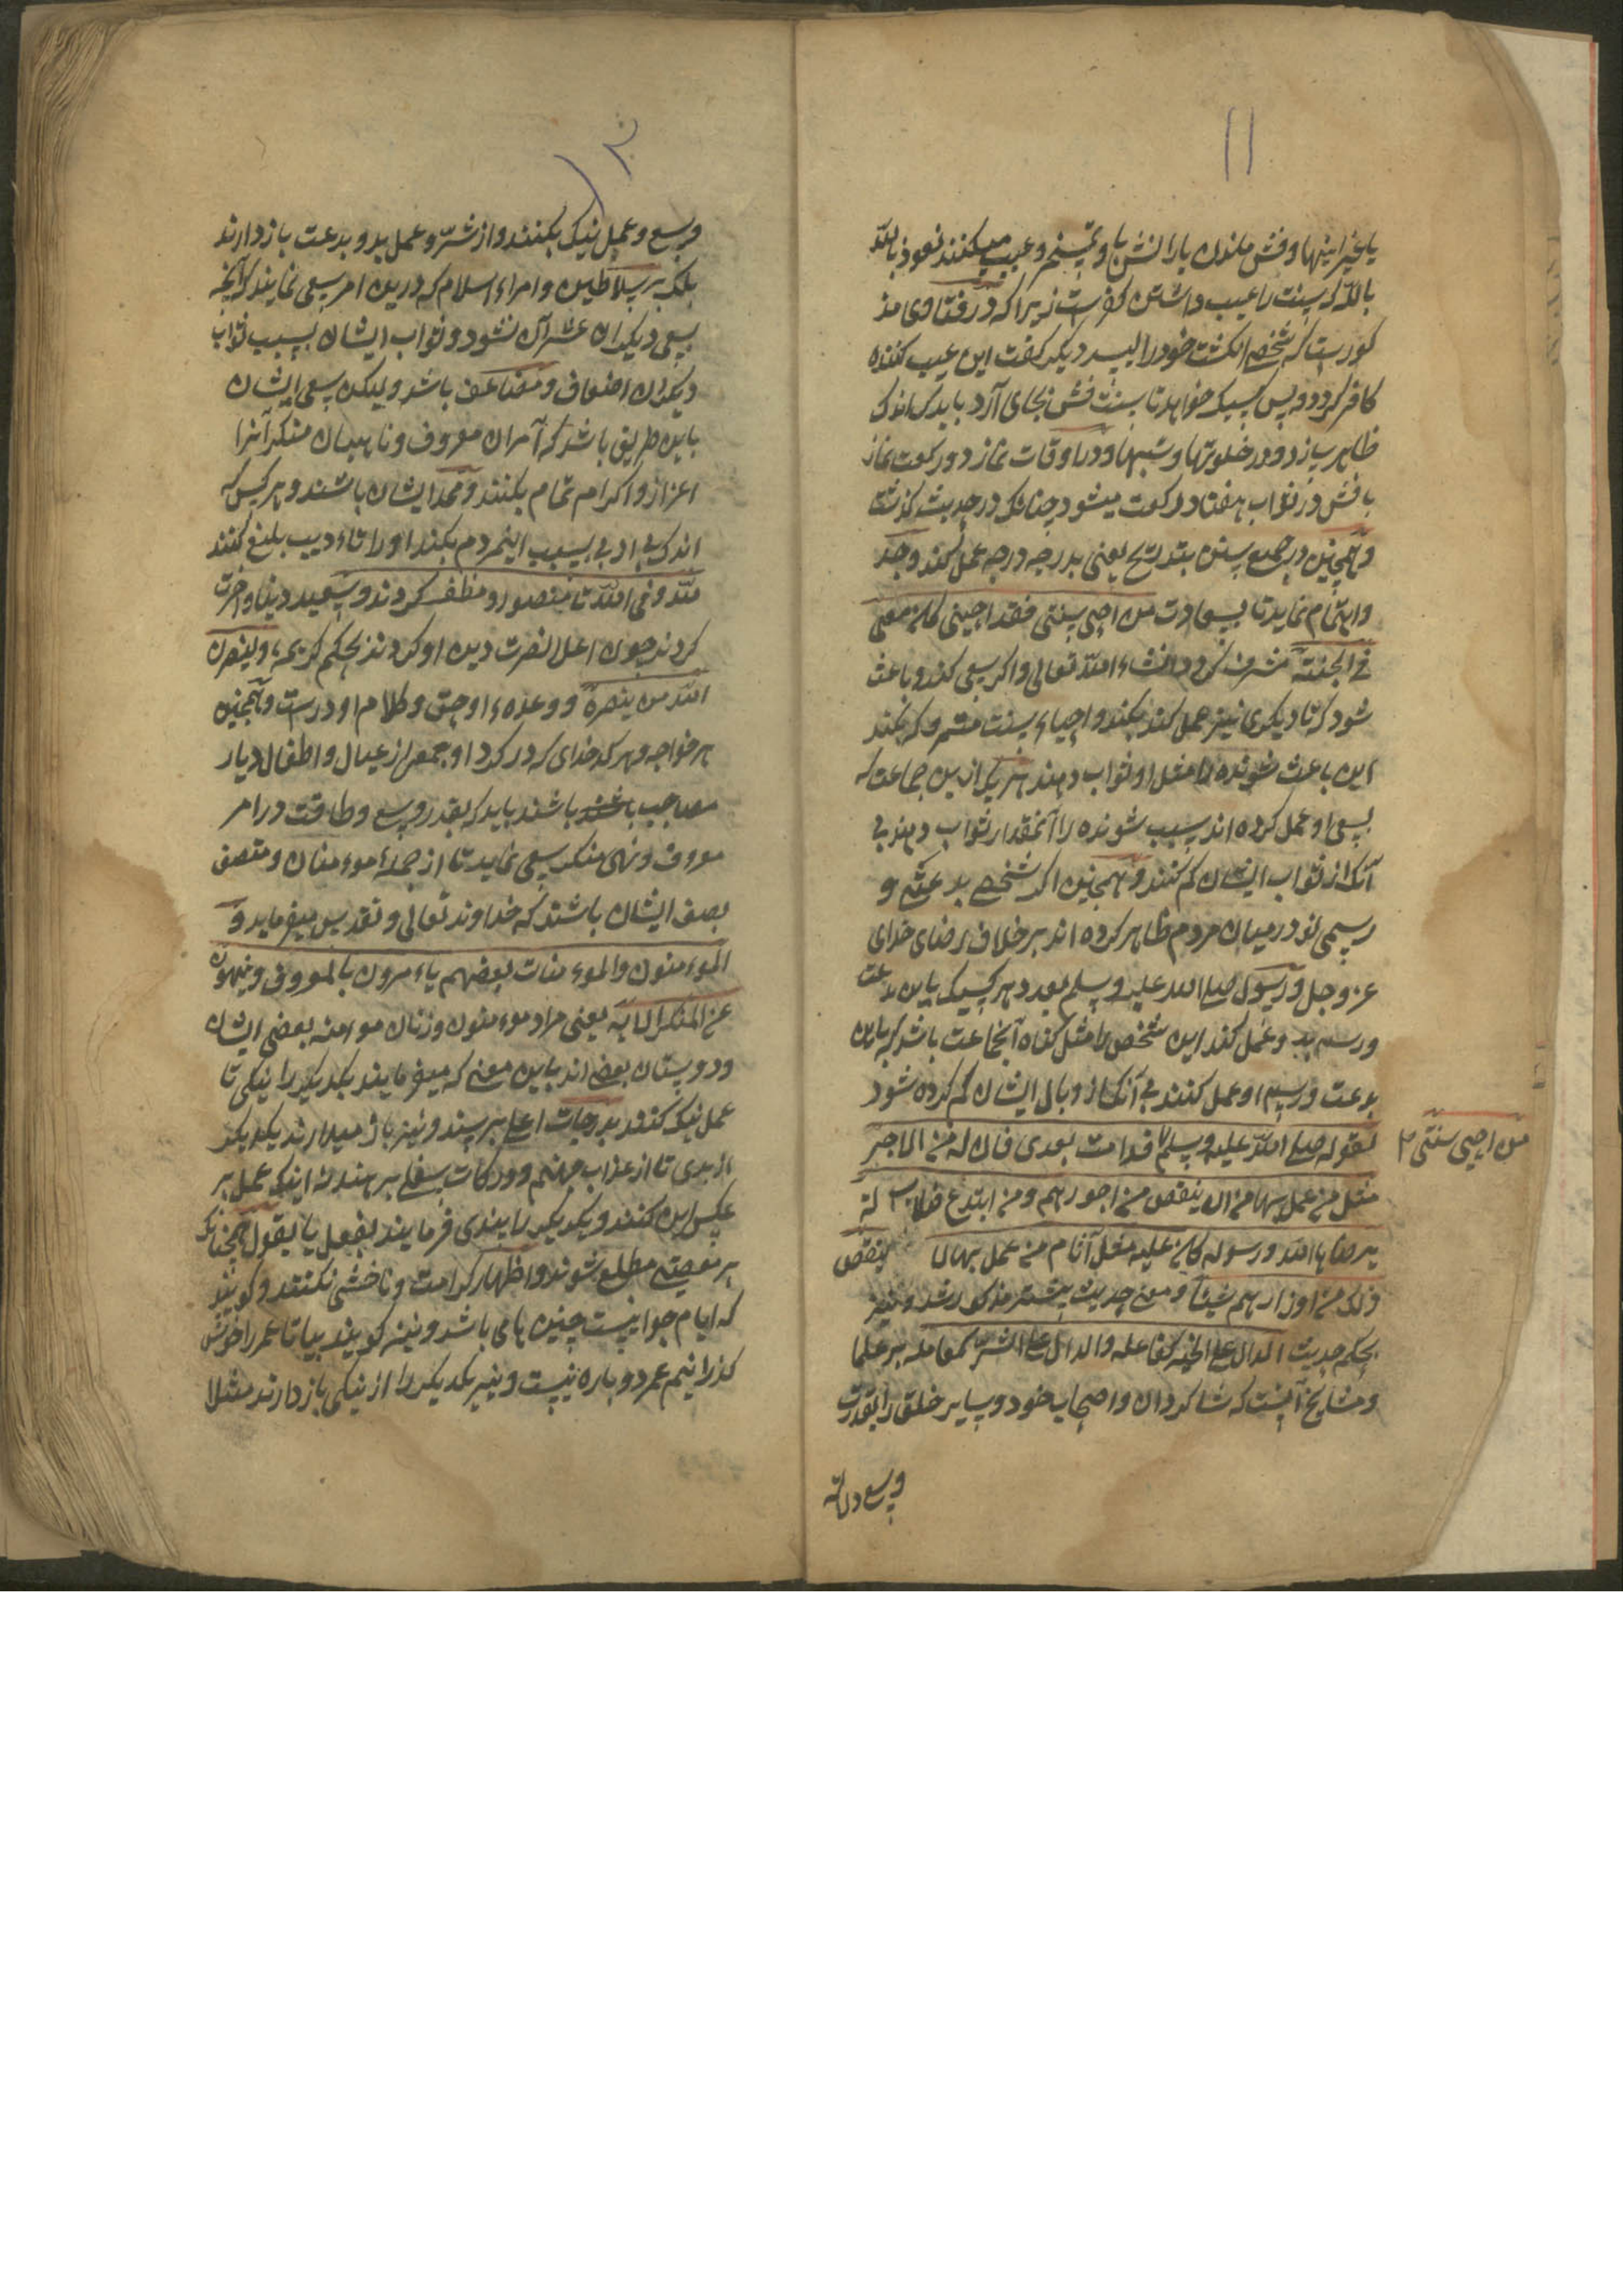 ۱۱
یا غیر اینها و فش ماندن یارا نش یا و تمسخر و عیب میکنند نعوذ بالله
بالله که سنت را عیب داشتن کفرست زیرا که در فتاوی مذ
کورست که شخصی انکشت خود را لیسد دیکر کفت این عیب کننده
کافر کردد و پس کسیکه خواهد تا سنت فش بجای آرد باید که اندک
ظاهر سازد و در خلوتها و شبها و در اوقات نماز دو رکعت نماز
با فش در ثواب هفتاد رکعت میشود چنانکه در حدیث کذشت
و همچنین در جمیع سنن بتدریج یعنی بدرجه درجه عمل کند و جد
و اهتمام نماید تا بسعادت من احیی سنتی فقد احیینی کان معی
فی الجنة مشرف کردد انشاء الله تعالی و اکر سعی کند و باعث
شود که تا دیکری نیز عمل کند بکند و احیاء سنت
این باعث شونده را مثل او ثواب دهند هر یکی ازین جماعت که
بسعی او عمل کرده اند سبب شونده را آنمقدار ثواب دهند بی
آنک از ثواب ایشان کم کنند و همچنین اکر شخصی بدعتی و
رسمی نو در میان مردم ظاهر کرده اند بر خلاف رضای خدای
عز و جل و رسول صلی الله علیه و سلم بعد هر کسیک باین بدعت
و رسم بد و عمل کند این شخص را مثل کناه آنجماعت باشد که باین
بدعت و رسم او عمل کنند بی آنک از وبال ایشان کم کرده شود
لقوله صلی الله علیه و سلم قد امت بعدی فان له من الاجر
من احیی سنتی
مثل من عمل بها من ان ینقص من اجورهم و من ابتدع ضلالة
یرضاها الله و رسوله کان علیه مثل آثام من عمل بها لا ینقص
ذلک من اوزارهم شیئا و معنی حدیث بیشتر مذکور شد و نیز
بحکم حدیث الدال علی الخیر کفاعله و الدال علی الشر کمعامله بر علما
و مشایخ آنست که شاکردان و اصحاب خود و سایر خلق را بقدرت
وسع
۱۲
وسع و عمل نیک بکنند و از شر و عمل بد و بدعت باز دارند
بلک بر سلاطین و امراء اسلام که درین امر سعی نمایند که آنچه
بسعی دیکران عشر آن نشود و ثواب ایشان بسبب ثواب
دیکران اضعاف و مضاعف باشد و لیکن سعی ایشان
باین طریق باشد که آمران معروف و ناهیان منکر آنرا
اعزاز و اکرام تمام بکنند و ممد ایشان باشند و هر کس که
اندک بی ادبی بسبب اینمردم بکند او را تاءدیب بلیغ کنند
لله و فی الله تا منصور و مظفر کردند و سعید دنیا و آخرت
کردند چون اعلا نصرت دین او کردند بحکم کریمه و لینصرن
الله من ینصره و وعدهء او حق و کلام او درست و همچنین
هر خواجه و هر کدخدای که در کرد او جمعی از عیال و اطفال دیار
مصاحب باشند باشند باید که بقدر وسع و طاقت در امر
معروف و نهی منکر سعی نماید تا از جملهء موءمنان و متصف
بصفت ایشان باشند که خداوند تعالی و تقدس میفرماید و
الموءمنون و الموءمنات بعضهم یاءمرون بالمعروف و ینهون
عن المنکر الایه یعنی مراد موءمنون و زنان موءمنه بعضی ایشان
و دوستان بعضی اند باین معنی که میفرمایند یکدیکر را نیکی تا
عمل نیک کنند بدرجات اعلی برسند و نیز باز میدارند یکدیکر
از بدی تا از عذاب جهنم و درکات سفلی برهند نه اینک عمل بر
عکس این کنند و یکدیکر را بندی فرمایند بفعل یا بقول همچنانک
بر معصیتی مطلع شوند و اظهار کرامت و ناخشی نکنند و کویند
که ایام جوانیست چنین ها می باشد و نیز کویند بیا تا عمر را خوش
کذرانیم عمر دوباره نیست و نیز یکدیکر را از نیکی باز دارند مثلا